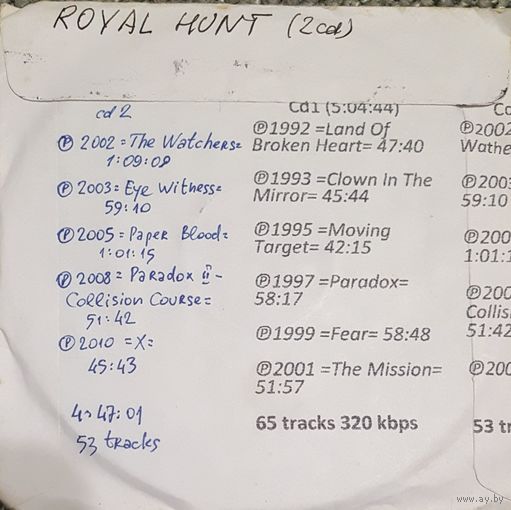 ROYAL HUNT (2cd)
cd 2
Ⓟ 2002 = The Watchers=
1:09:08
Ⓟ 2003= Eye Witness=
59:10
Ⓟ 2005= Paper Blood=
1:01:15
Ⓟ 2008= Paradox II -
Collision Course=
51:42
Ⓟ 2010 =X=
45:43
4:47:01
53 tracks
Cd1 (5:04:44)
Ⓟ1992 =Land Of
Broken Heart= 47:40
Ⓟ1993 =Clown In The
Mirror= 45:44
Ⓟ1995 =Moving
Target= 42:15
Ⓟ1997 =Paradox=
58:17
Ⓟ1999 =Fear= 58:48
Ⓟ2001 =The Mission=
51:57
65 tracks 320 kbps
Cd
Ⓟ2002
Wathe
Ⓟ2003
59:10
Ⓟ200
1:01:1
Ⓟ200
Collis
51:42
Ⓟ200
53 tr
www.ay.by